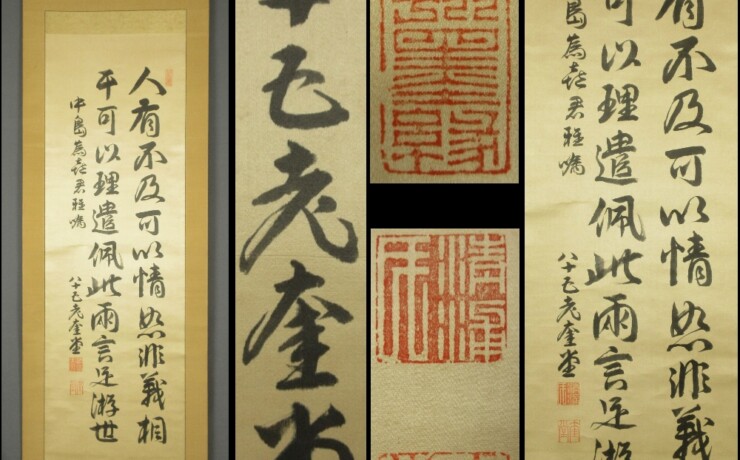 人有不及可以情恕非義相
干可以理遣佩此兩言足游世
中島為君雅嘱
八十五老奎堂
十五老奎堂
有不及可以情恕非義
可以理遣佩此兩言足游
島為君雅嘱
八十五老奎堂